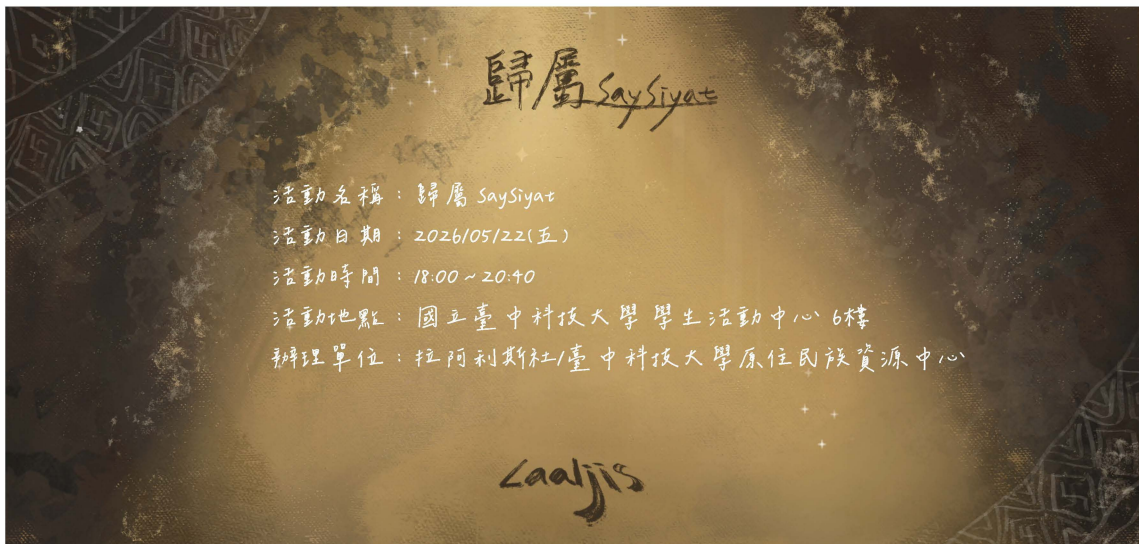 歸屬 SaySiyat
活動名稱：歸屬 SaySiyat
活動日期：2026/05/22(五)
活動時間：18:00~20:40
活動地點：國立臺中科技大學 學生活動中心 6樓
辦理單位：拉阿利斯社/臺中科技大學原住民族資源中心
Laaljis